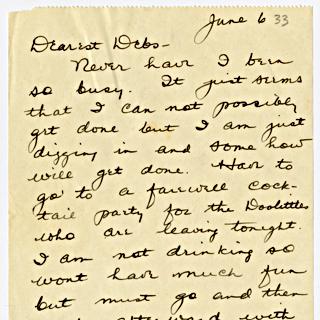 June 6 33
Dearest Debs-
Never have I been
so busy. It just seems
that I can not possibly
get done but I am just
digging in and some how
will get done. Have to
go to a farewell cock-
tail party for the Doolittles
who are leaving tonight.
I am not drinking so
wont have much fun
but must go and then
with